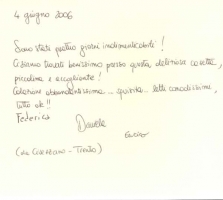 4 giugno 2006
Sono stati quattro giorni indimenticabili!
Ci siamo trovati benissimo presso questa deliziosa casetta,
piccolina e accogliente!
Colazione abbondantissima... squisita... letti comodissimi,
tutto ok!!
Federica Daniele
(da - Trento)